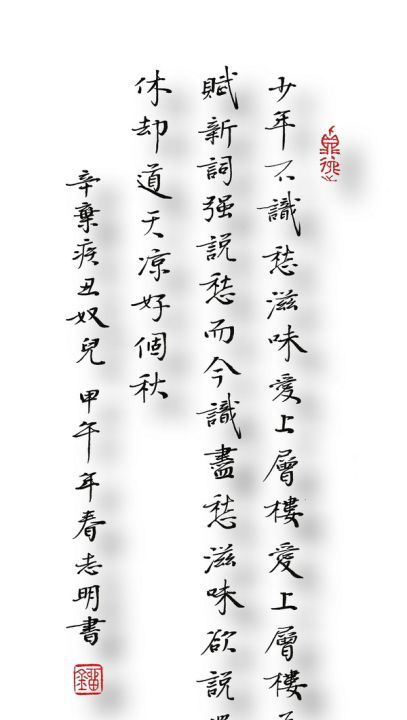 少年不識愁滋味愛上層樓愛上層樓
賦新詞强説愁而今識盡愁滋味欲説
休却道天凉好個秋
辛棄疾丑奴兒 甲午年春志明書